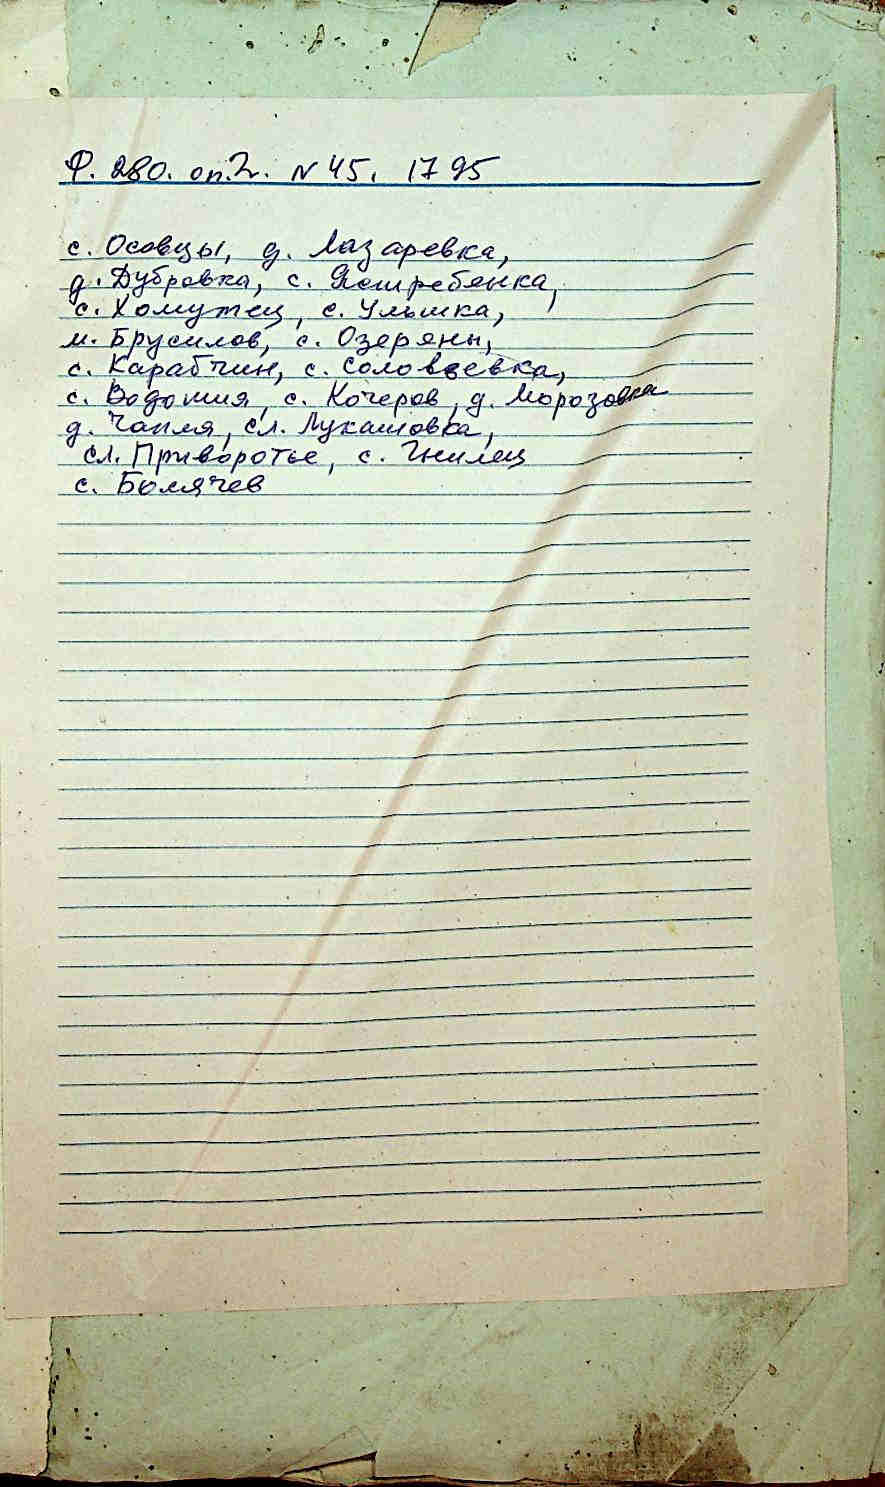 Ф. 280. оп. 2. N 45. 1795
с. Осовцы, д. Лазаревка,
д. Дубровка, с. Ястребенка,
с. Хомутец, с. Ульшка,
м. Брусилов, с. Озеряны,
с. Карабчин, с. Соловьевка,
с. Водотия, с. Кочеров, д. Морозовка
д. Чапля, сл. Лукашовка,
сл. Приворотье, с. Гнилец
с. Болячев